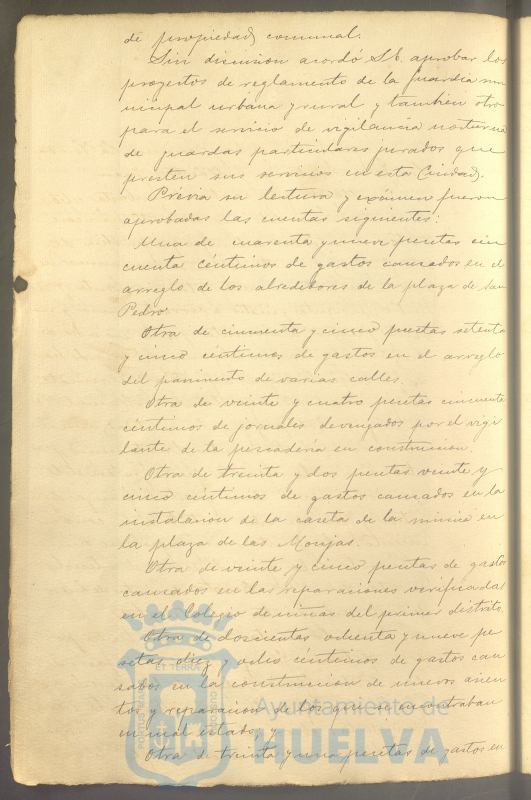 de propiedad comunal.
Sin discusion acordó S.E. aprobar los
proyectos de reglamento de la Guardia mu
nicipal urbana y rural y tambien otro
para el servicio de vigilancia nocturna
de guardas particulares jurados que
presten sus servicios en esta Ciudad.
Prévia su lectura y exámen fueron
aprobadas las cuentas siguientes:
Una de cuarenta y nueve pesetas cin
cuenta céntimos de gastos causados en el
arreglo de los alrededores de la plaza de San
Pedro.
Otra de cincuenta y cinco pesetas setenta
y cinco céntimos de gastos en el arreglo
del pavimento de varias calles.
Otra de veinte y cuatro pesetas cincuenta
céntimos de jornales devengados por el vigi
lante de la pescadería en construccion.
Otra de treinta y dos pesetas veinte y
cinco céntimos de gastos causados en la
instalacion de la caseta de la música en
la plaza de las Monjas.
Otra de veinte y cinco pesetas de gastos
causados en las reparaciones verificadas
en el Colegio de niñas del primer distrito.
Otra de doscientas ochenta y nueve pe
setas diez y ocho céntimos de gastos cau
sados en la construccion de nuevos asien
tos y reparacion de los que se encontraban
en mal estado, y
Otra de treinta y una pesetas de gastos en
Ayuntamiento de
HUELVA